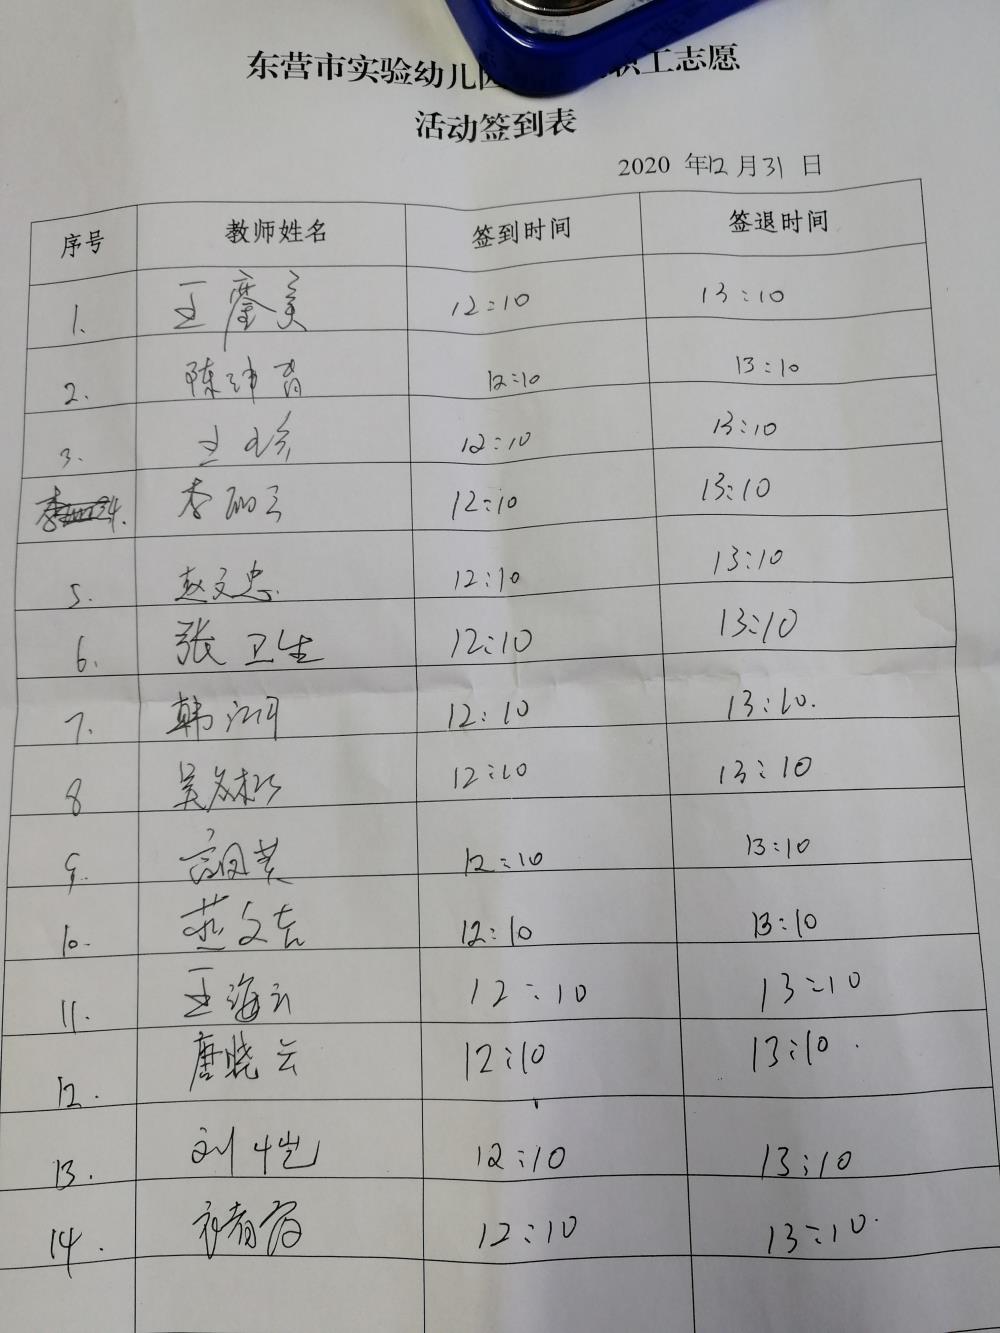 东营市实验幼儿园 职工志愿
活动签到表
2020 年12月31日
序号 教师姓名 签到时间 签退时间
1. 王 美 12:10 13:10
2. 陈 12:10 13:10
3. 王 12:10 13:10
4. 李丽云 12:10 13:10
5. 赵文忠 12:10 13:10
6. 张卫生 12:10 13:10
7. 韩江河 12:10 13:10.
8 吴 松 12:10 13:10
9. 高凤英 12:10 13:10
10. 燕文吉 12:10 13:10
11. 王海云 12:10 13:10
12. 唐晓云 12:10 13:10.
13. 刘恺 12:10 13:10
14. 12:10 13:10.